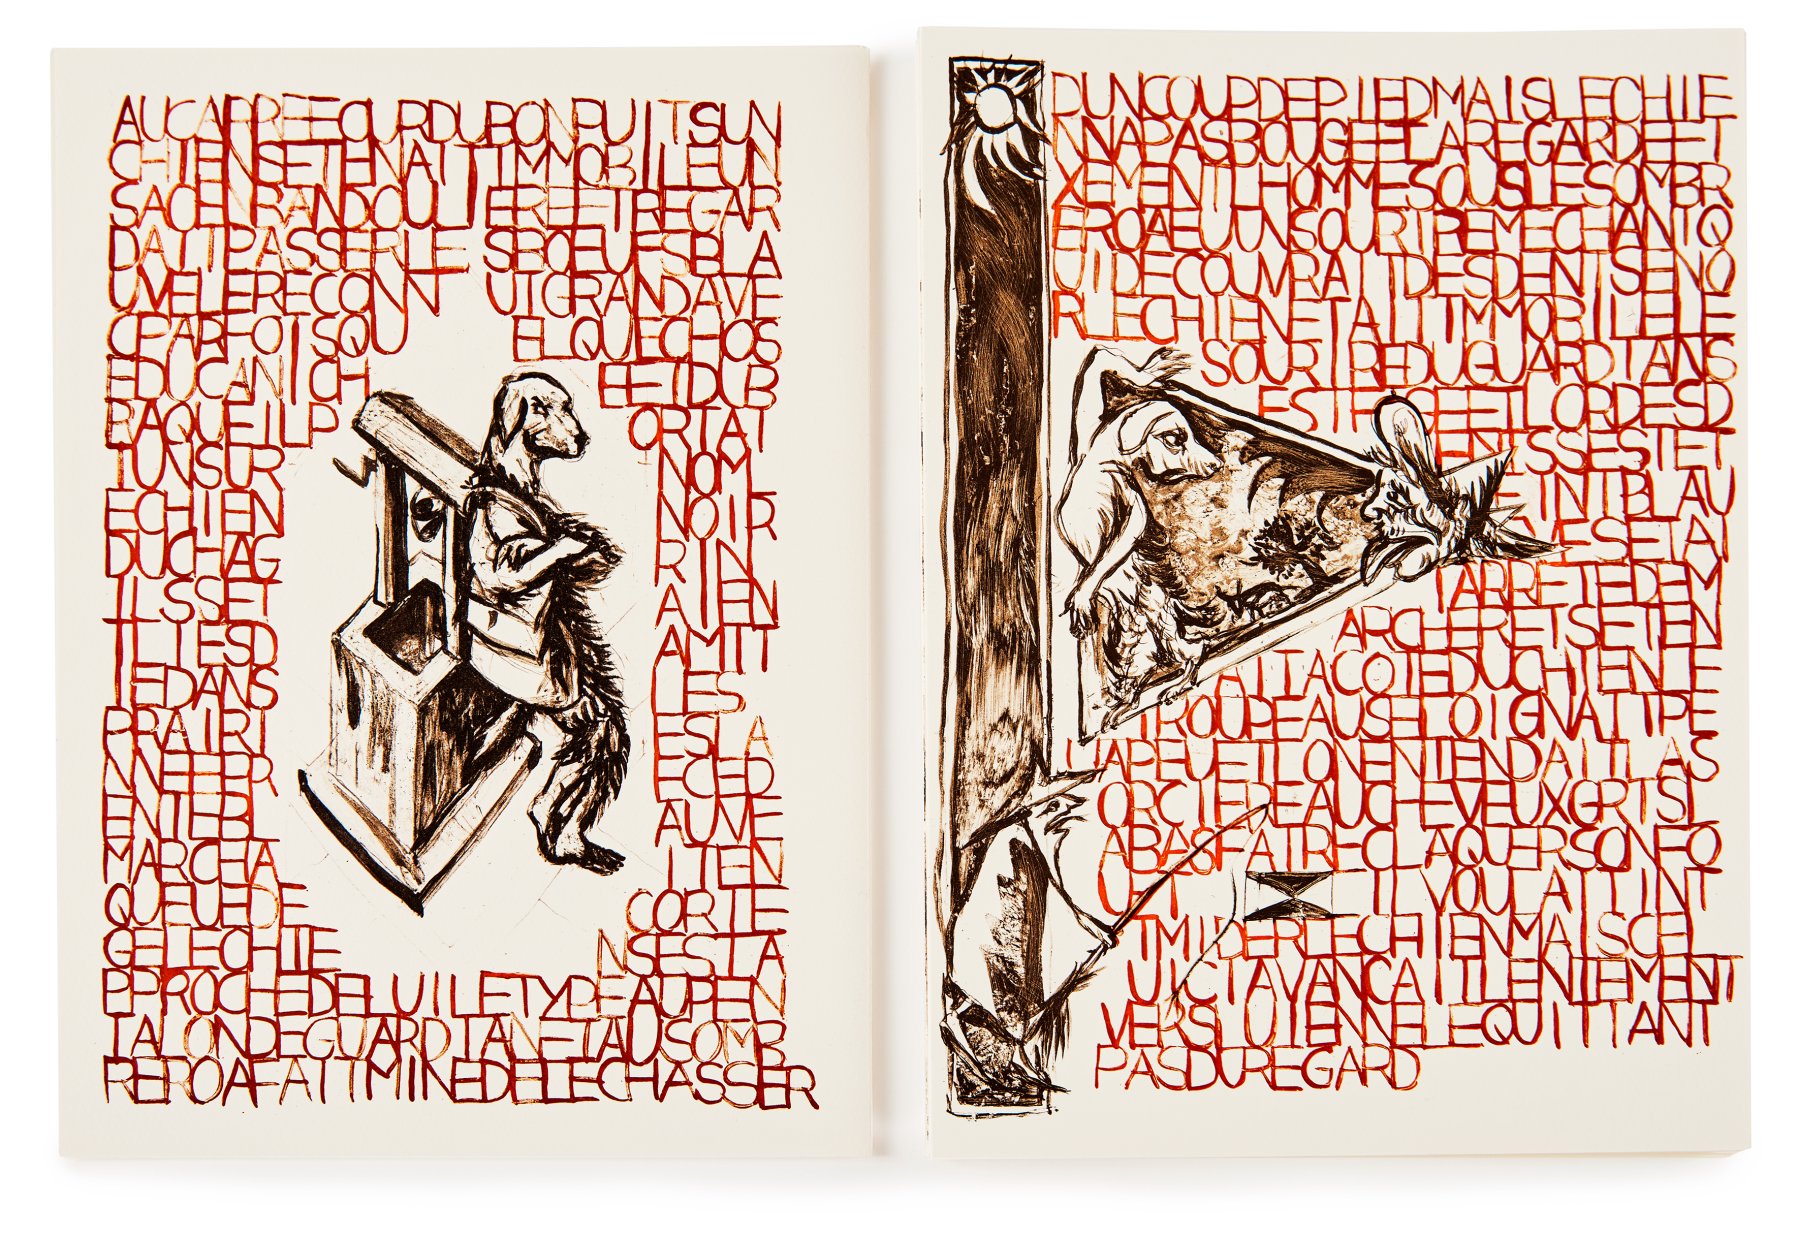 AUCARREFOURDUBONPUITSUN
CHIENSETENAITIMMOBILEUN
SACENBANDOULIEREETREGAR
DAITPASSERLE SBOEUFSBLA
UVELERECONN UTGRANDAVE
CPARFOISQU ELQUECHOS
EDUCANICH EETDUB
RAQUEILP ORTAIT
IUNSUR NOM
ECHIEN NOIR
DUCHAG RIN
ILSSET AIEN
TLIESD AMIT
IEDANS LES
PRAIRI ESLA
NNEEPR ECED
ENTEBL AUVE
MARCHA ITEN
QUEUEDE CORTE
GELECHIE NSESTA
PPROCHEDELUILETYPEAUPEN
TALONDEGUARDIANETAUSOMB
REROAFAITMINEDELECHASSER
DUNCOUPDEPIEDMAISLECHIE
NNAPASBOUGEELAREGARDEFI
XEMENTLHOMMESOUSLESOMBR
EROAEUUNSOURIREMECHANTQ
UIDECOUVRAITDESDENTSENO
RLECHIENETAITIMMOBILELE
SOURIREDUGUARDIANS
ESTFIGEETLORDESD
ENTSSESTET
EINTBLAU
VESETAI
TARRETEDEM
ARCHERETSETEN
AITACOTEDUCHIENLE
TROUPEAUSELOIGNAITPE
UAPEUETLONENTENDAITLAS
ORCIEREAUCHEVEUXGRISL
ABASFAIRECLAQUERSONFO
UET ILVOULAITINT
IMIDERLECHIENMAISCEL
UICIAVANCAITLENTEMENT
VERSLUIENNELEQUITTANT
PASDUREGARD